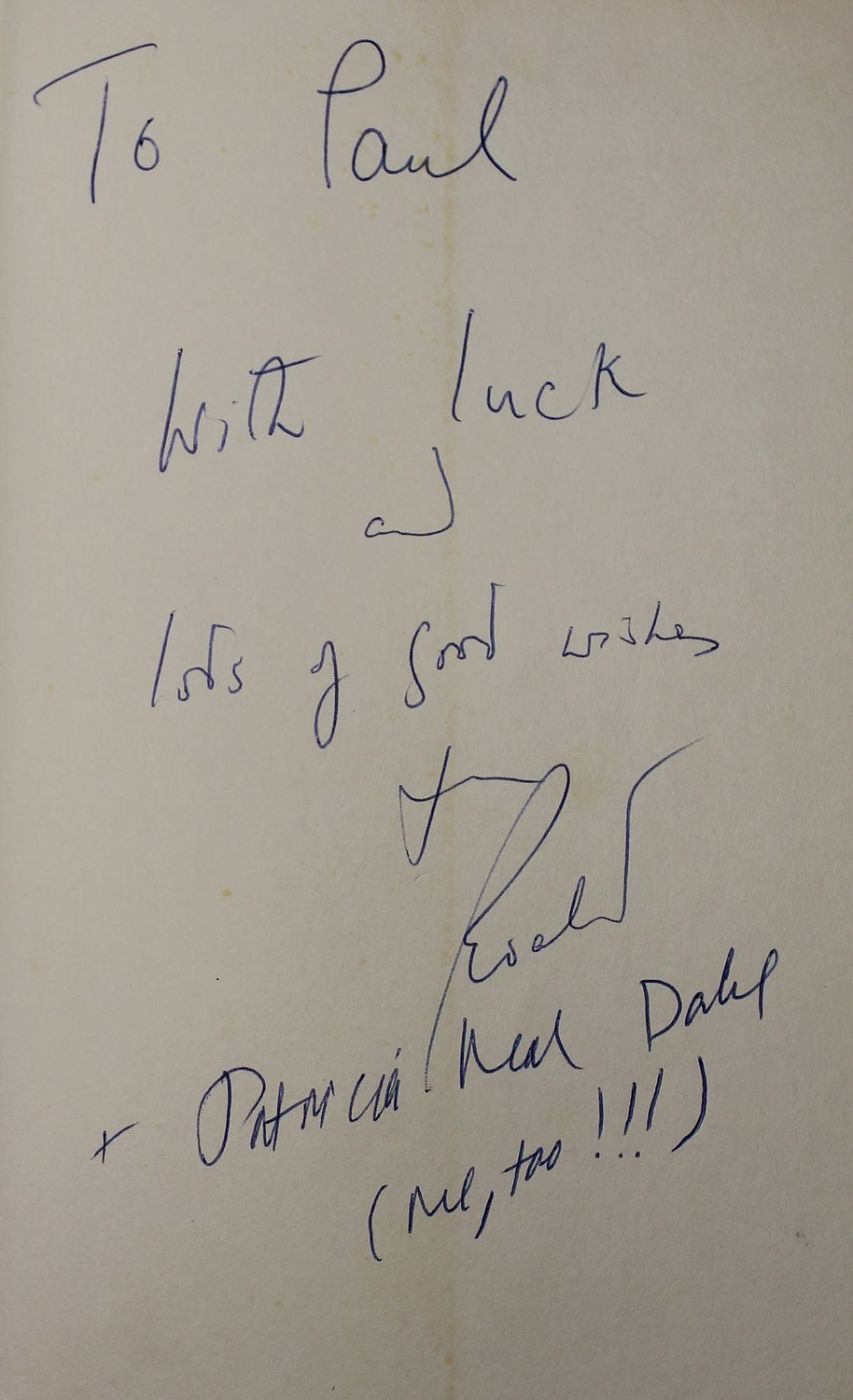 To Paul
With luck
and
lots of good wishes
from
Roald
+ Patricia Neal Dahl
(Me, too !!!)